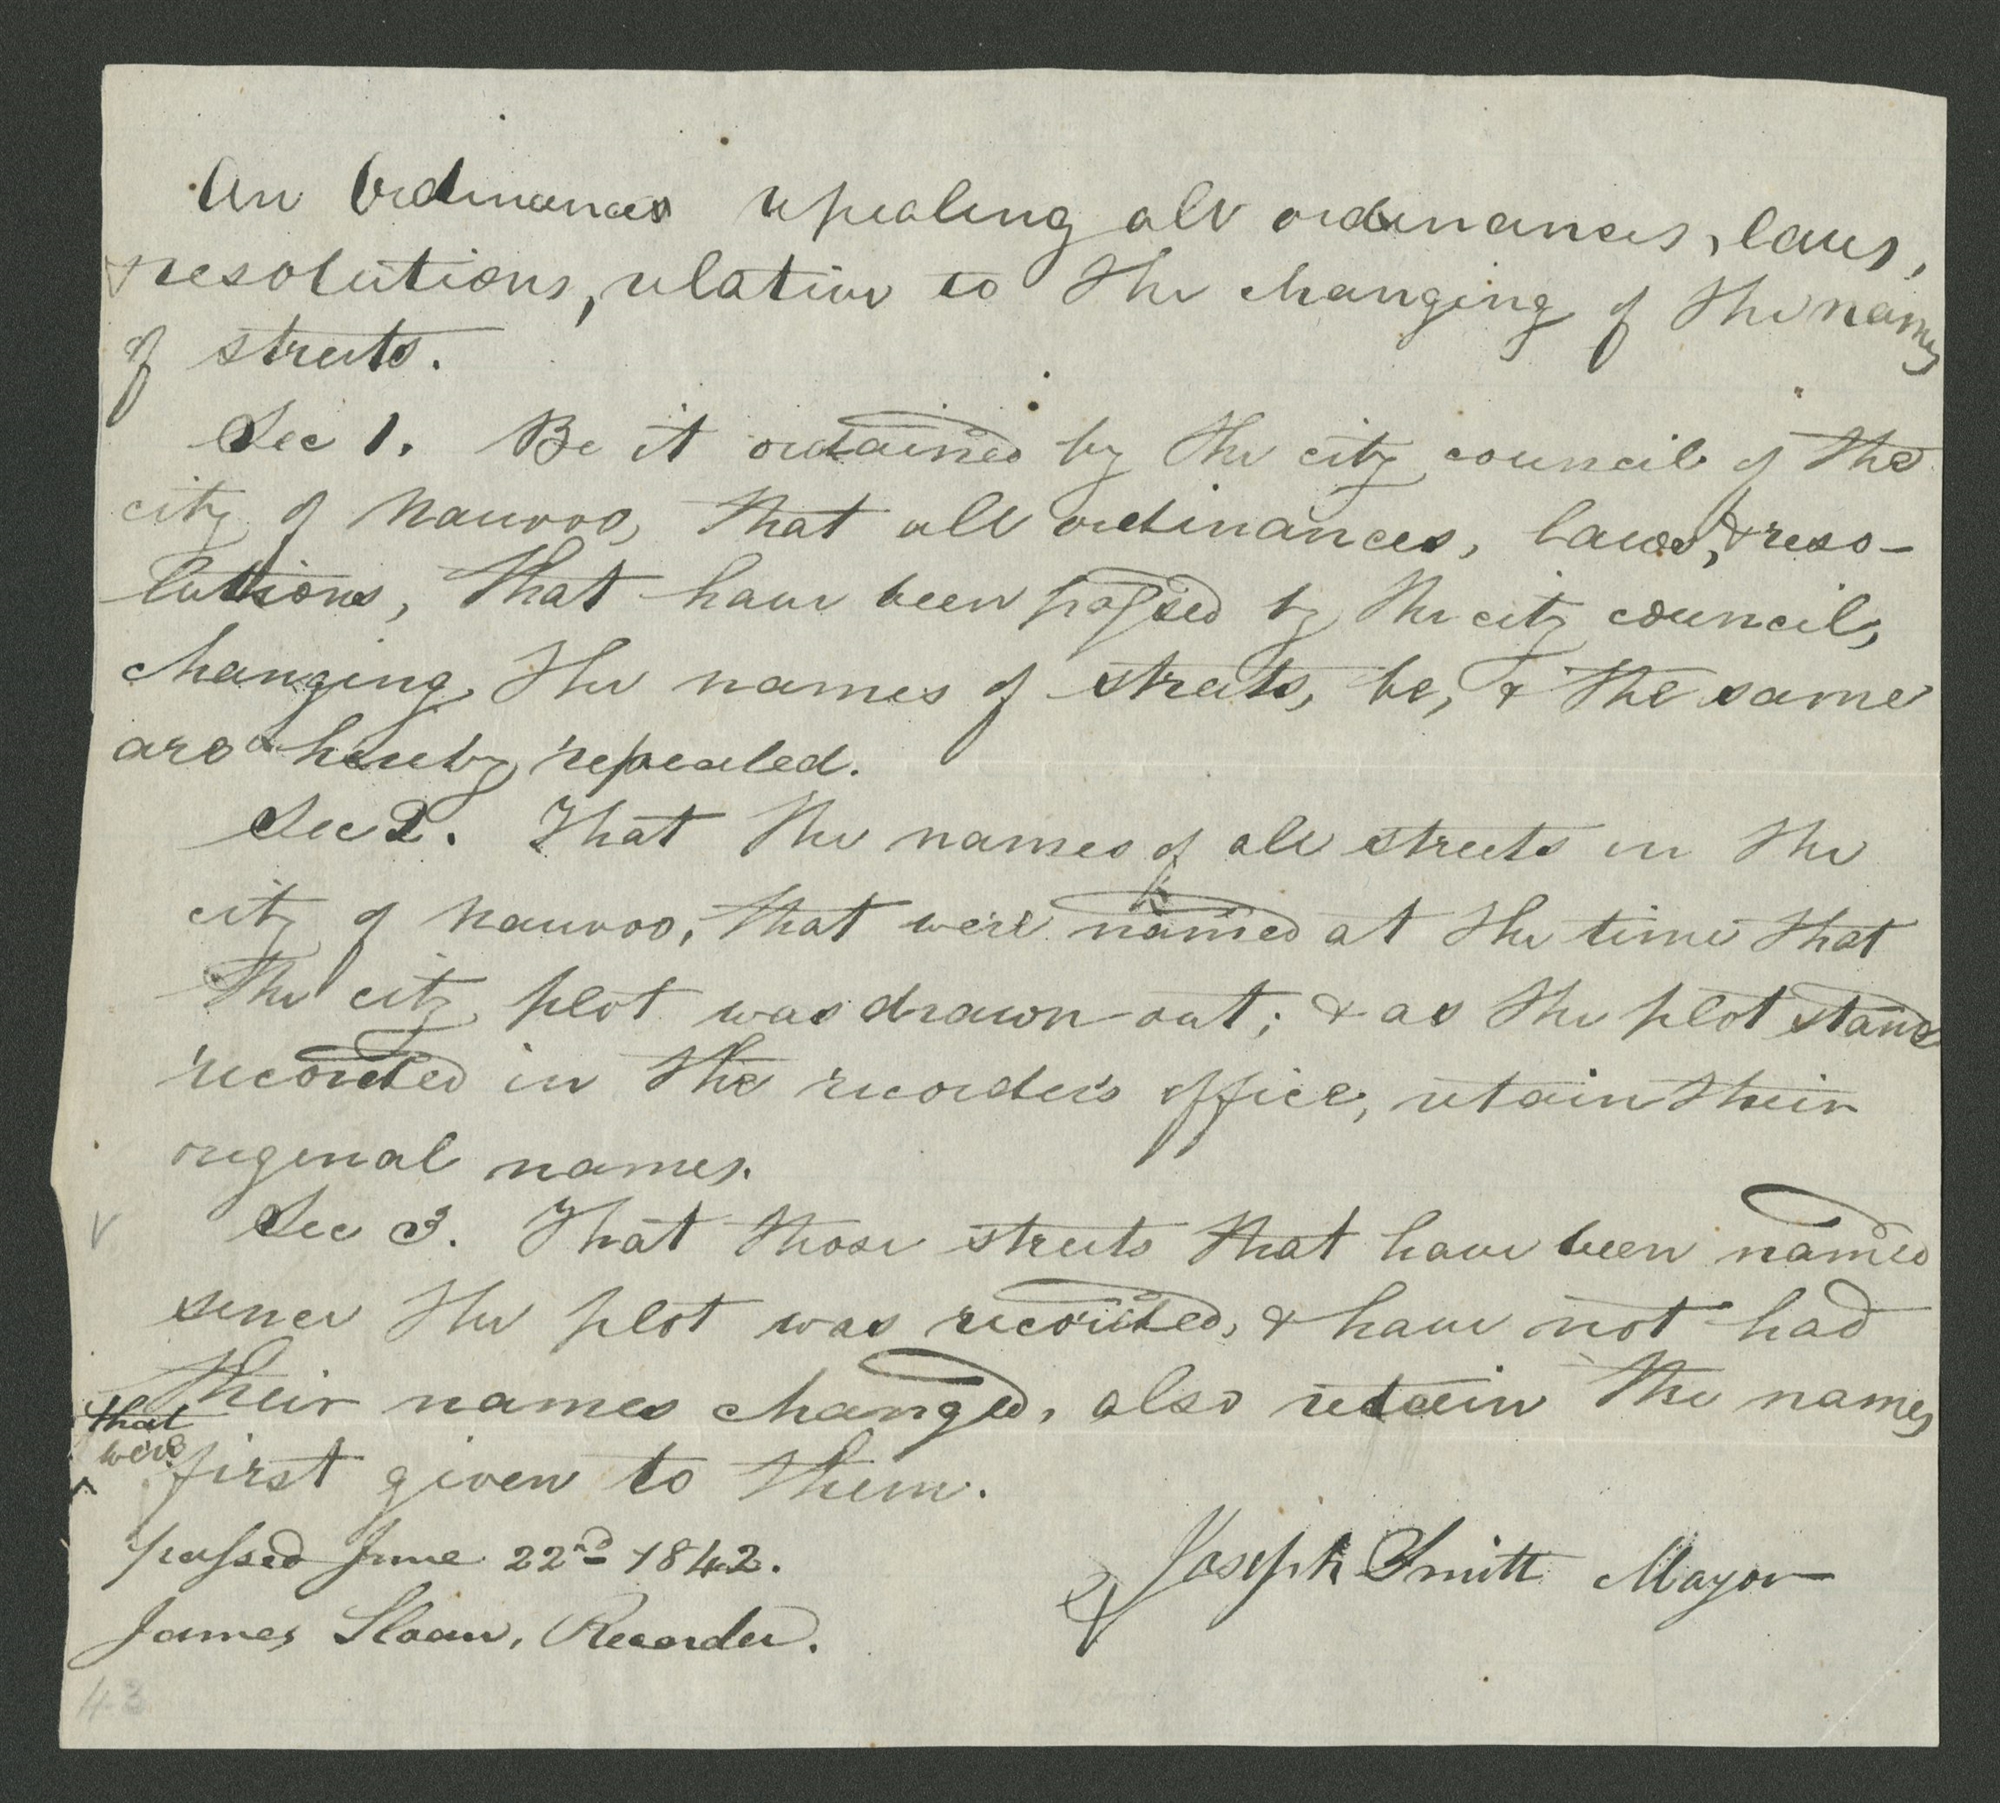 An Ordinances repealing all ordinances, laws,
resolutions, relative to the changing of the names
of streets.
Sec 1. Be it ordained by the city council of the
city of Nauvoo, that all ordinances, laws, & reso-
lutions, that have been passed by the city council,
changing the names of streets, be, & the same
are hereby repealed.
Sec 2. That the names of all streets in the
city of Nauvoo, that were named at the time that
the city plot was drawn out; & as the plot stands
recorded in the recorder's office, retain their
original names.
Sec 3. That those streets that have been named
since the plot was recorded, & have not had
their names changed, also retain the names
that
were
^ first given to them.
passed June 22nd 1842.
Joseph Smith Mayor
James Sloan, Recorder.
43